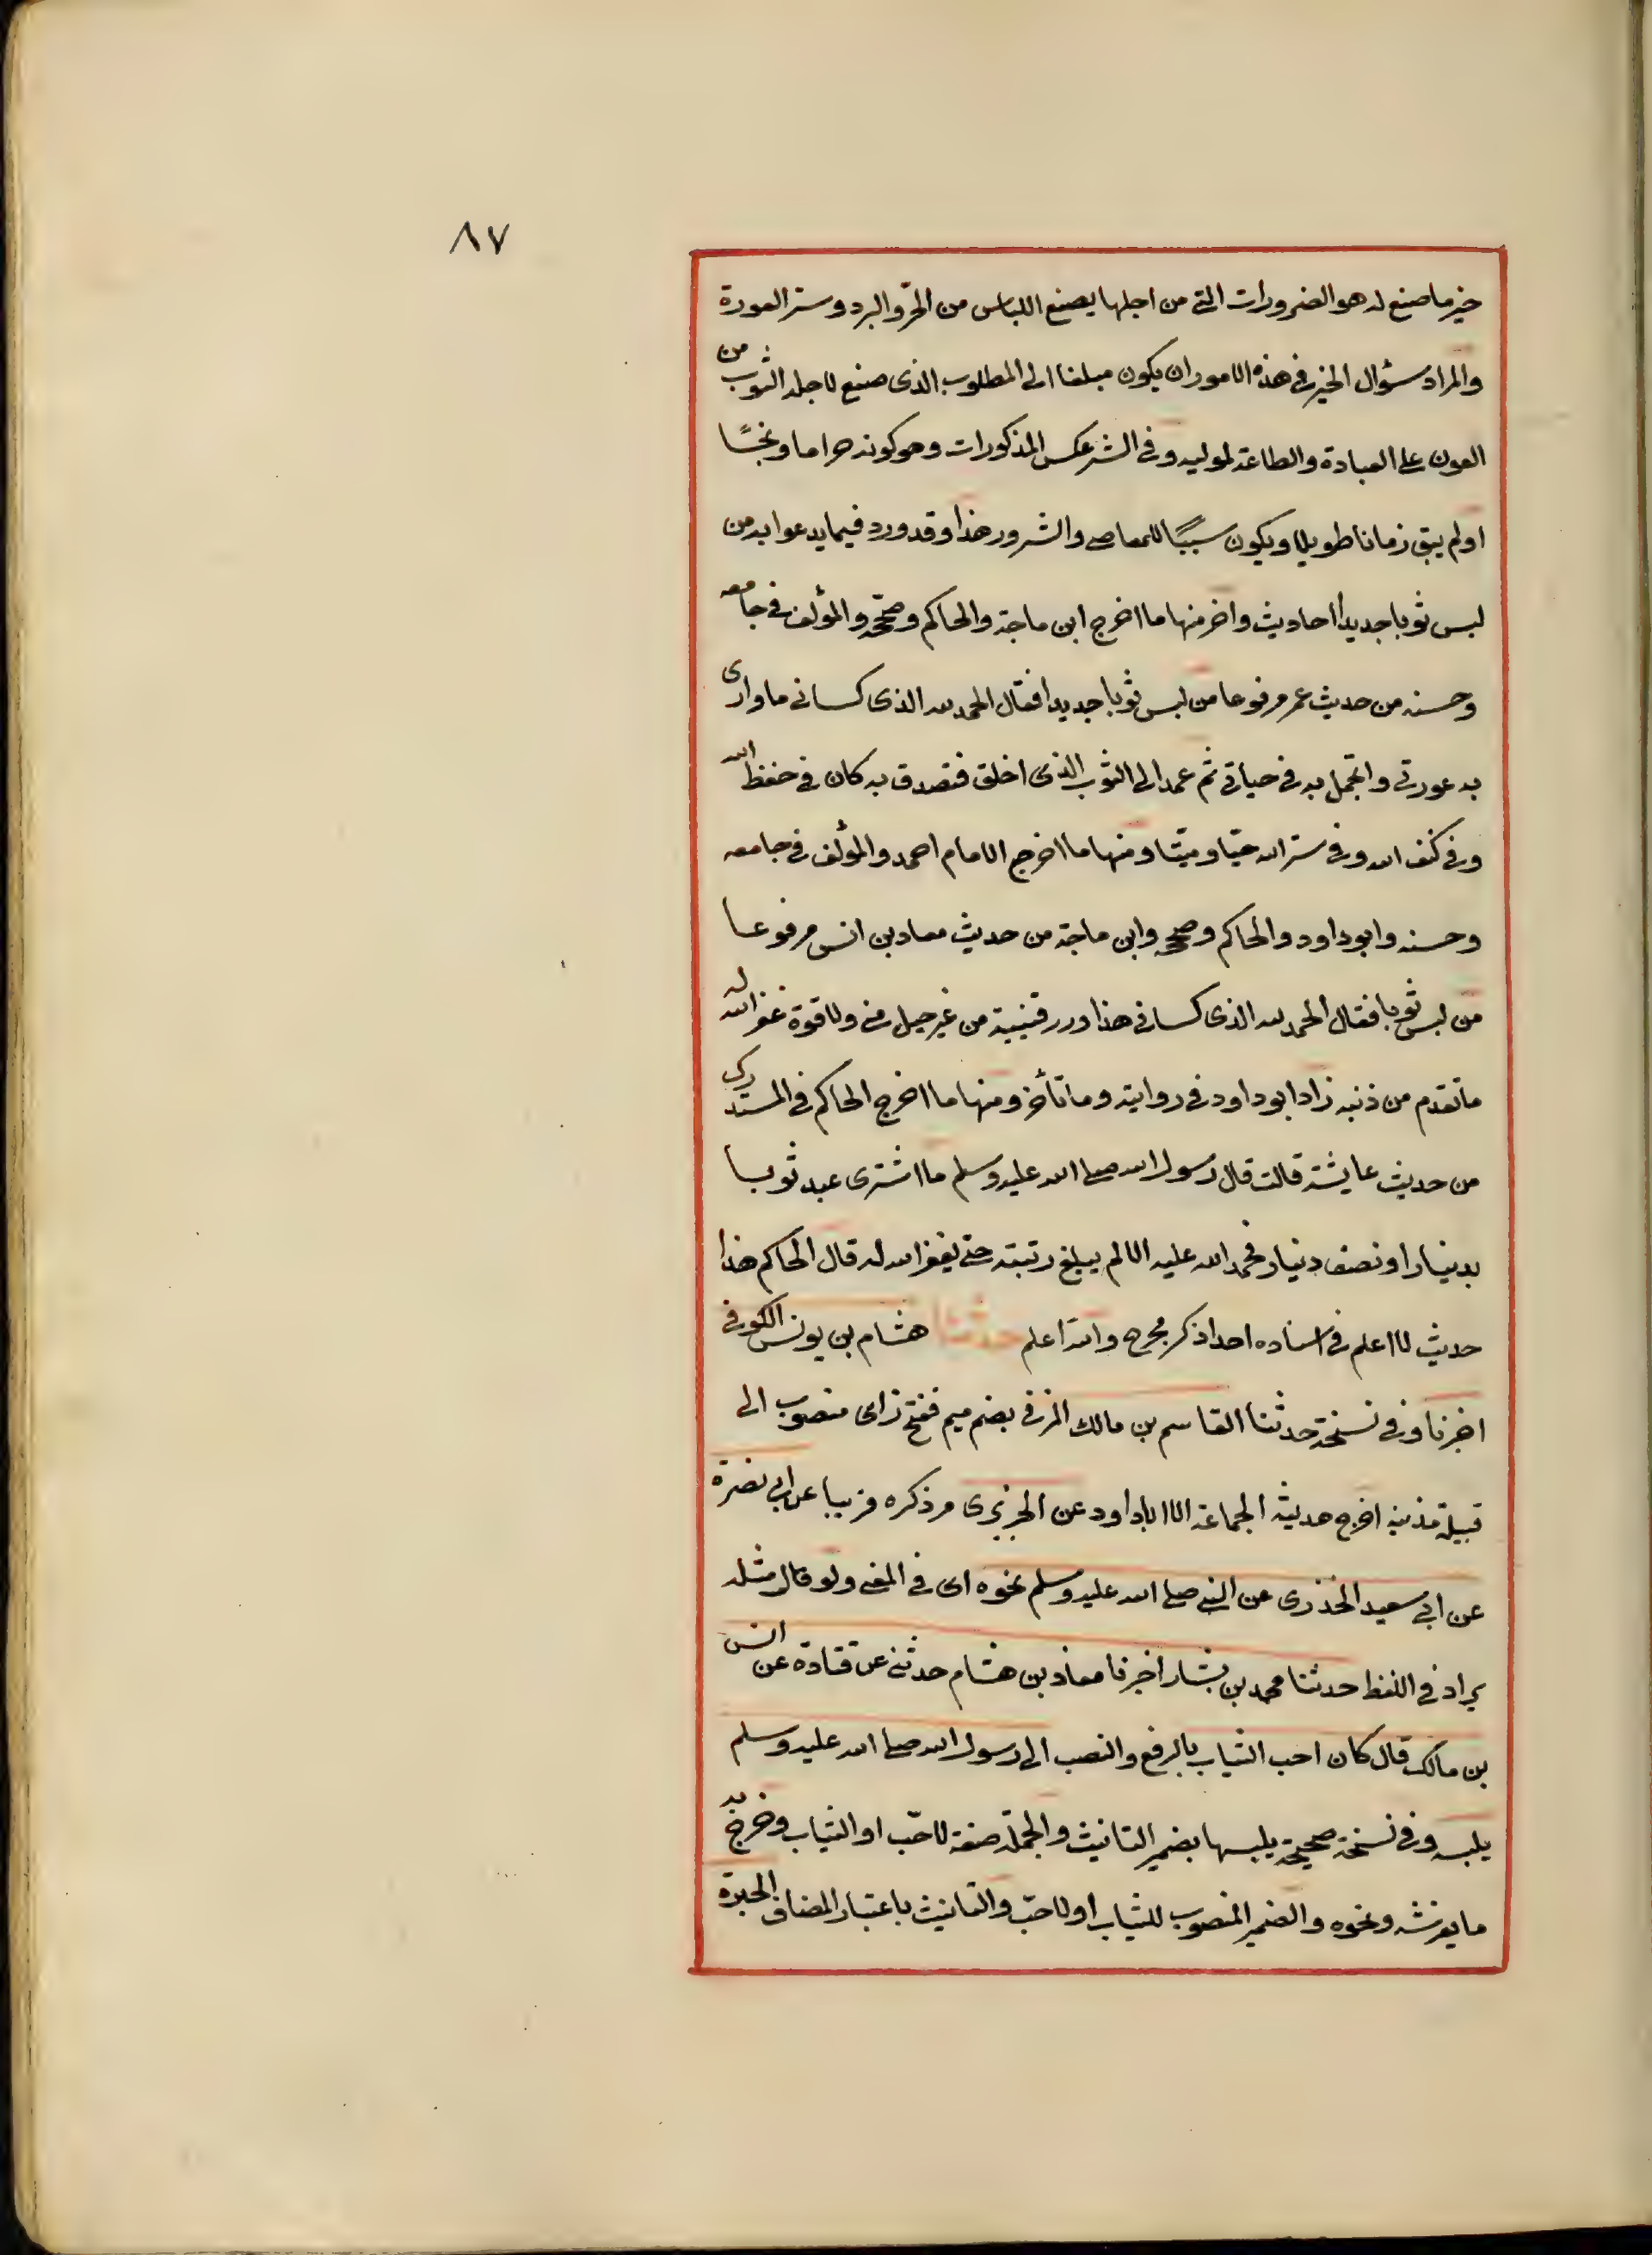 ٨٧
خير ما صنع له هو الضرورات التي من اجلها يصنع اللباس من الحرّ والبرد وستر العورة
والمراد سؤال الخير في هذه الامور ان يكون مبلغا الى المطلوب الذى صنع لاجله الثوب من
العون على العبادة والطاعة لموليه وفي الشر عكس المذكورات وهو كونه حراما ونجسًا
او لم يبق زمانا طويلا ويكون سببًا للمعاصي والشرور هذا وقد ورد فيما يدعوا به من
لبس ثوبا جديداً احاديث واخر منها ما اخرج ابن ماجة والحاكم وصحّحه والمؤلف في جامعه
وحسنه من حديث عمر مرفوعا من لبس ثوبا جديدا فقال الحمد لله الذى كسانى ما وارى
به عورتي واتجمل به في حياتي ثم عمد الى الثوب الذى اخلق فتصدق به كان في حفظ الله
وفي كنف الله وفي ستر الله حيّا وميّتا ومنها ما اخرج الامام احمد والمؤلف في جامعه
وحسنه وابو داود والحاكم وصححه وابن ماجة من حديث معاد بن انس مرفوعا
من لبس ثوبا فقال الحمد لله الذى كسانى هذا ورزقينيه من غير حيل منى ولا قوة غفر الله له
ما تقدم من ذنبه زاد ابو داود في روايته وما تأخر ومنها ما اخرج الحاكم في المستدرك
من حديث عايشة قالت قال رسول الله صلى الله عليه وسلم ما اشترى عبد ثوبا
بدينار او نصف دينار فحمد الله عليه الا لم يبلغ رتبته حتى يغفر الله له قال الحاكم هذا
حديث لا اعلم في اسناده احدا ذكر مجرح والله اعلم حدثنا هشام بن يونس الكوفى
اخبرنا وفي نسخة حدثنا القاسم بن مالك المزنى بضم ميم ففتح زاى منصوب الى
قبيلة مذنية اخرج حديثه الجماعة الا اباداود عن الجريرى مر ذكره قريبا عن ابي نضرة
عن ابي سعيد الخذرى عن النبي صلى الله عليه وسلم نحوه اى في المعنى ولو قال مثله
يراد في اللفظ حدثنا محمد بن بشار اخبرنا معاذ بن هشام حدثنى عن قتادة عن انس
بن مالك قال كان احب الثياب بالرفع والنصب الى رسول الله صلى الله عليه وسلم
يلبسه وفي نسخة صحيحة يلبسها بضمير التانيث والجملة صفة لاحّب او الثياب وخرج به
ما يفرشه ونحوه والضمير المنصوب للثياب او لاحبّ والتانيث باعتبار المضاف الحبرة